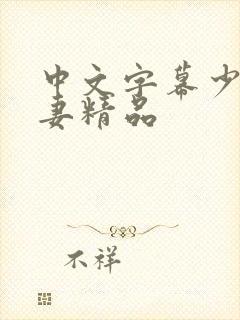 中文字幕少
妻精品
不祥